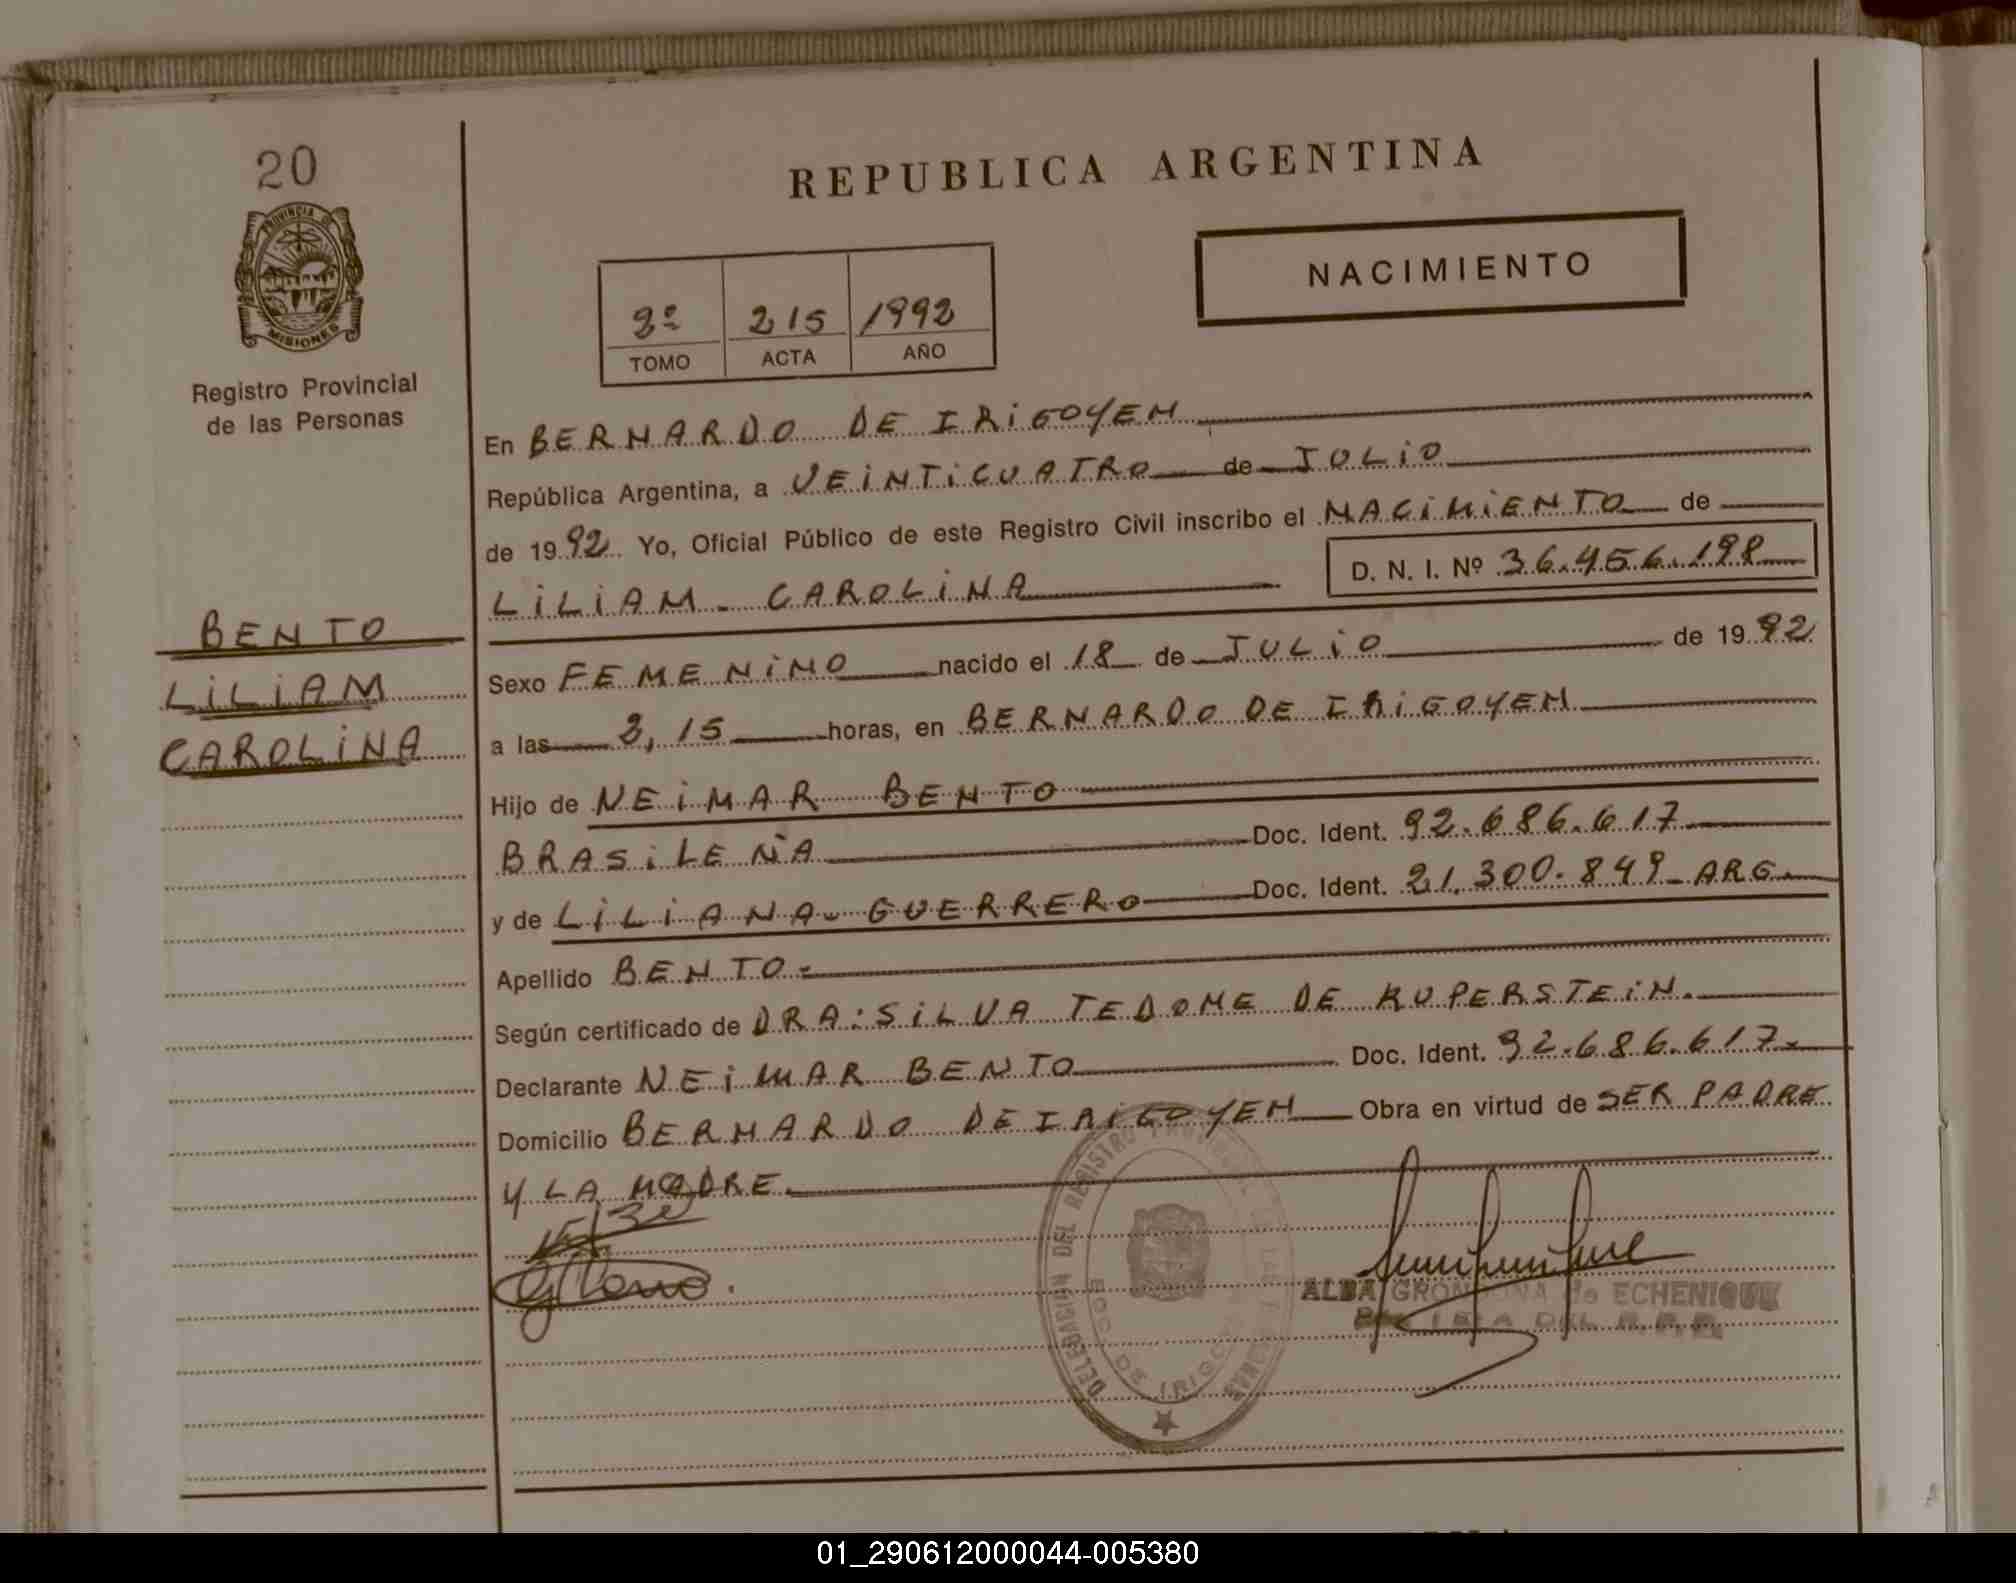 20
PROVINCIA DE
MISIONES
Registro Provincial
de las Personas
REPUBLICA ARGENTINA
NACIMIENTO
2º 215 1992
TOMO ACTA AÑO
En BERNARDO DE IRIGOYEN
República Argentina, a VEINTICUATRO de JULIO
de 1992 Yo, Oficial Público de este Registro Civil inscribo el NACIMIENTO de
LILIAM - CAROLINA D. N. I. Nº 36.456.198
BENTO
LILIAM
CAROLINA
Sexo FEMENINO nacido el 18 de JULIO de 1992
a las 2,15 horas, en BERNARDO DE IRIGOYEN
Hijo de NEIMAR BENTO
BRASILEÑA Doc. Ident. 92.686.617
y de LILIANA - GUERRERO Doc. Ident. 21.300.849 - ARG.
Apellido BENTO.-
Según certificado de DRA: SILVA TEDOME DE KUPERSTEIN.
Declarante NEIMAR BENTO Doc. Ident. 92.686.617.-
Domicilio BERNARDO DE IRIGOYEN Obra en virtud de SER PADRE
Y LA MADRE.
DELEGACION DEL REGISTRO PROVINCIAL DE LAS PERSONAS
BDO. DE IRIGOYEN
ALBA GRONDONA de ECHENIQUE
DEL R.P.P.
01_290612000044-005380